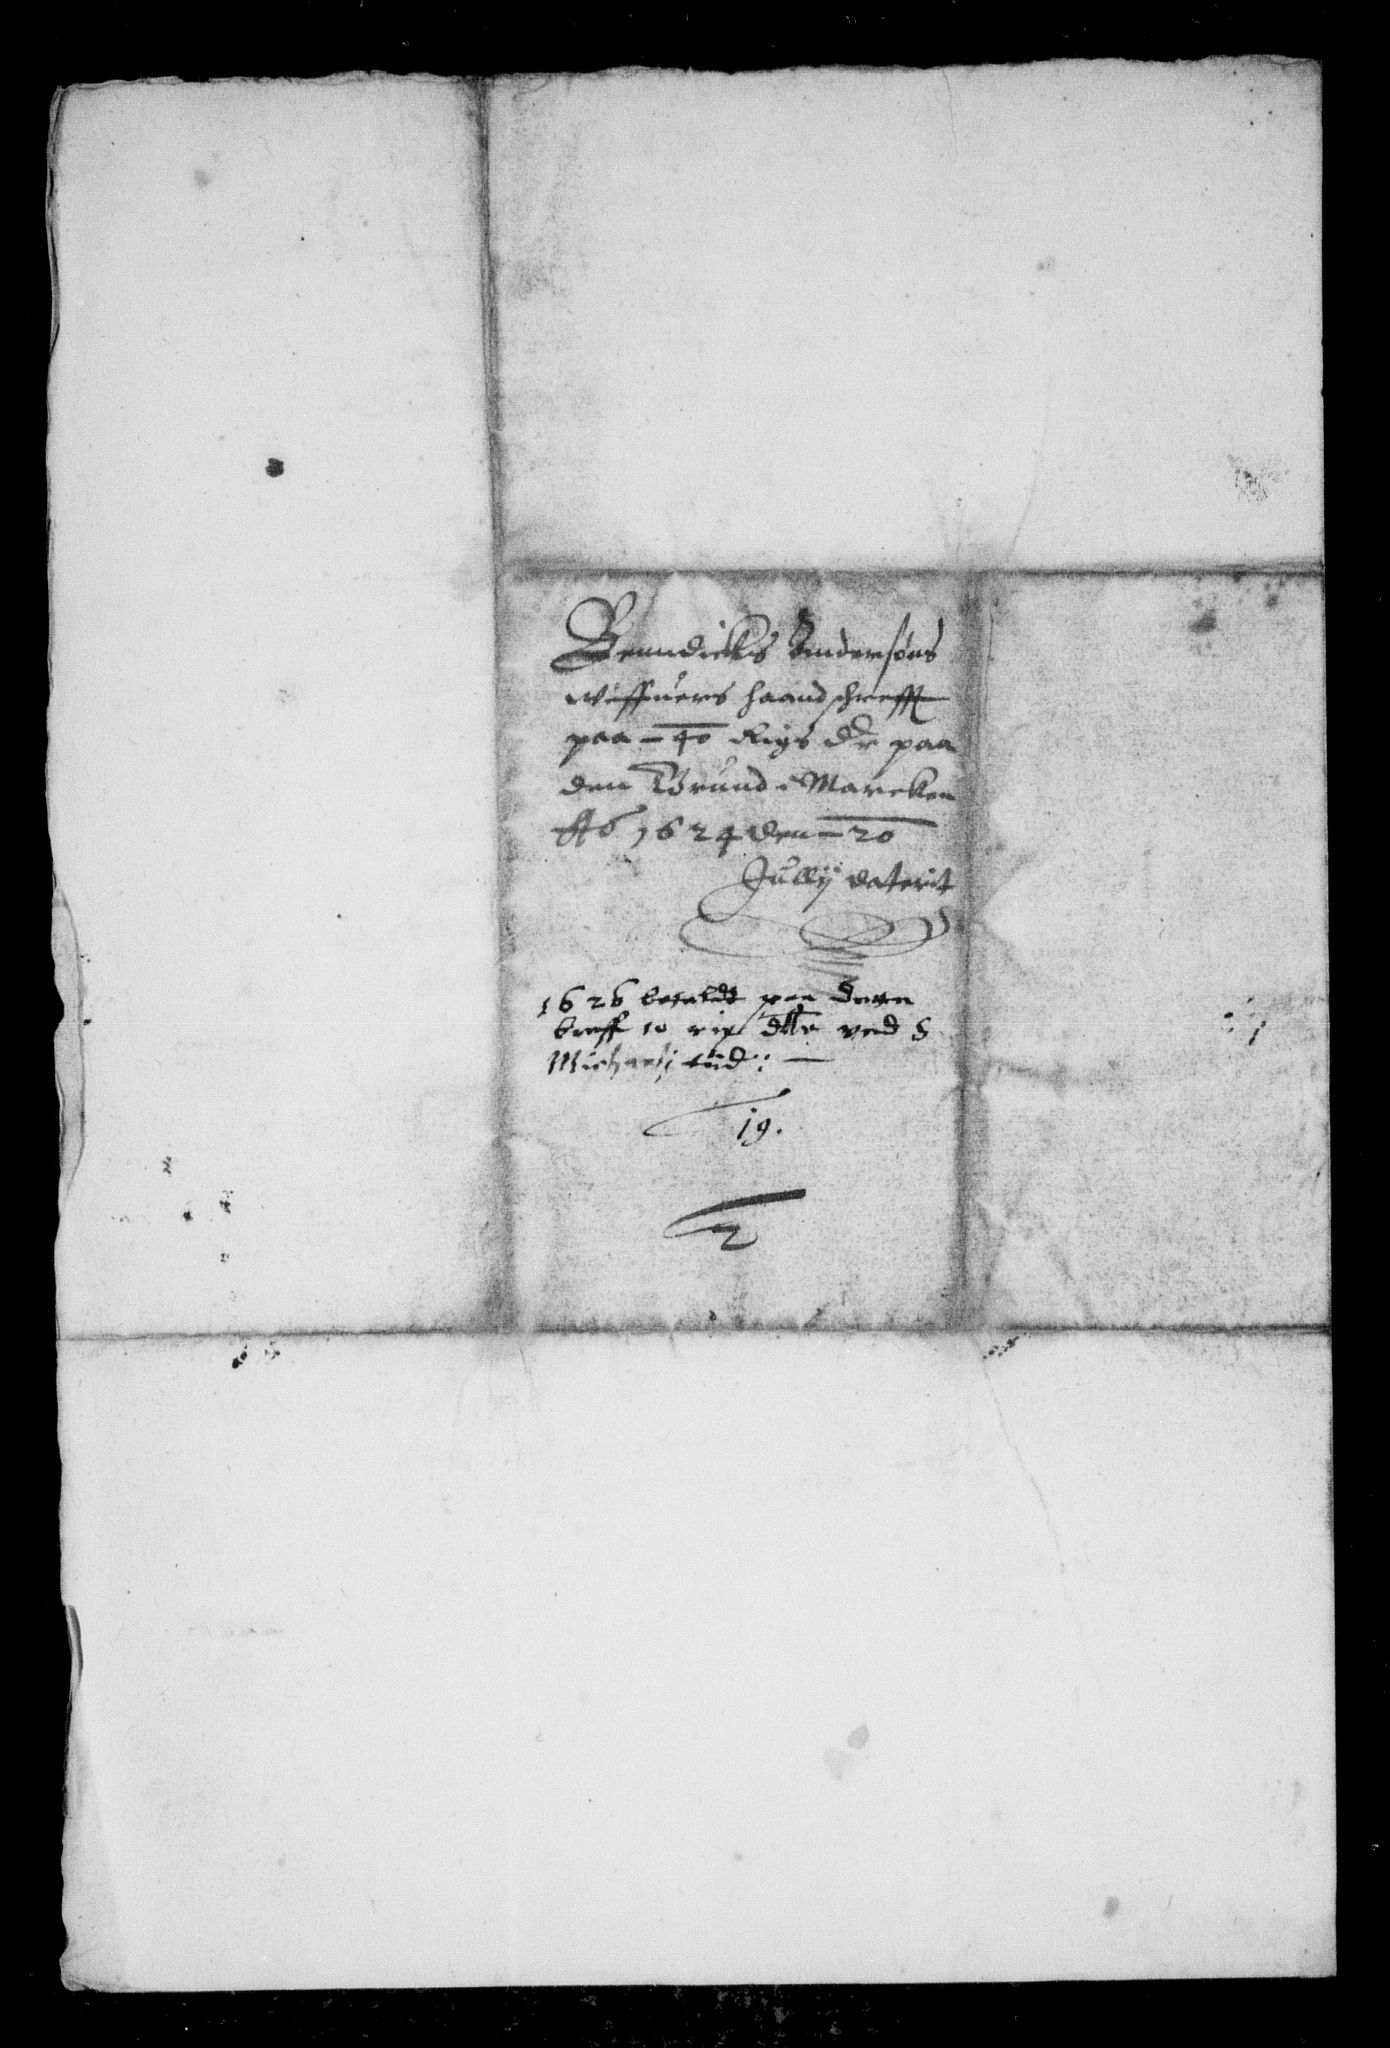 Benndicktis Andersøns
wiffuers haandschrefft
paa – 40 Rigs dlr paa
den Grund i Marcken
Ao 1624 den – 20
Jullij daterit
1626 betaldt paa dette
breff 10 rix dllr ved S
Michaeli tiid: –
19.
2